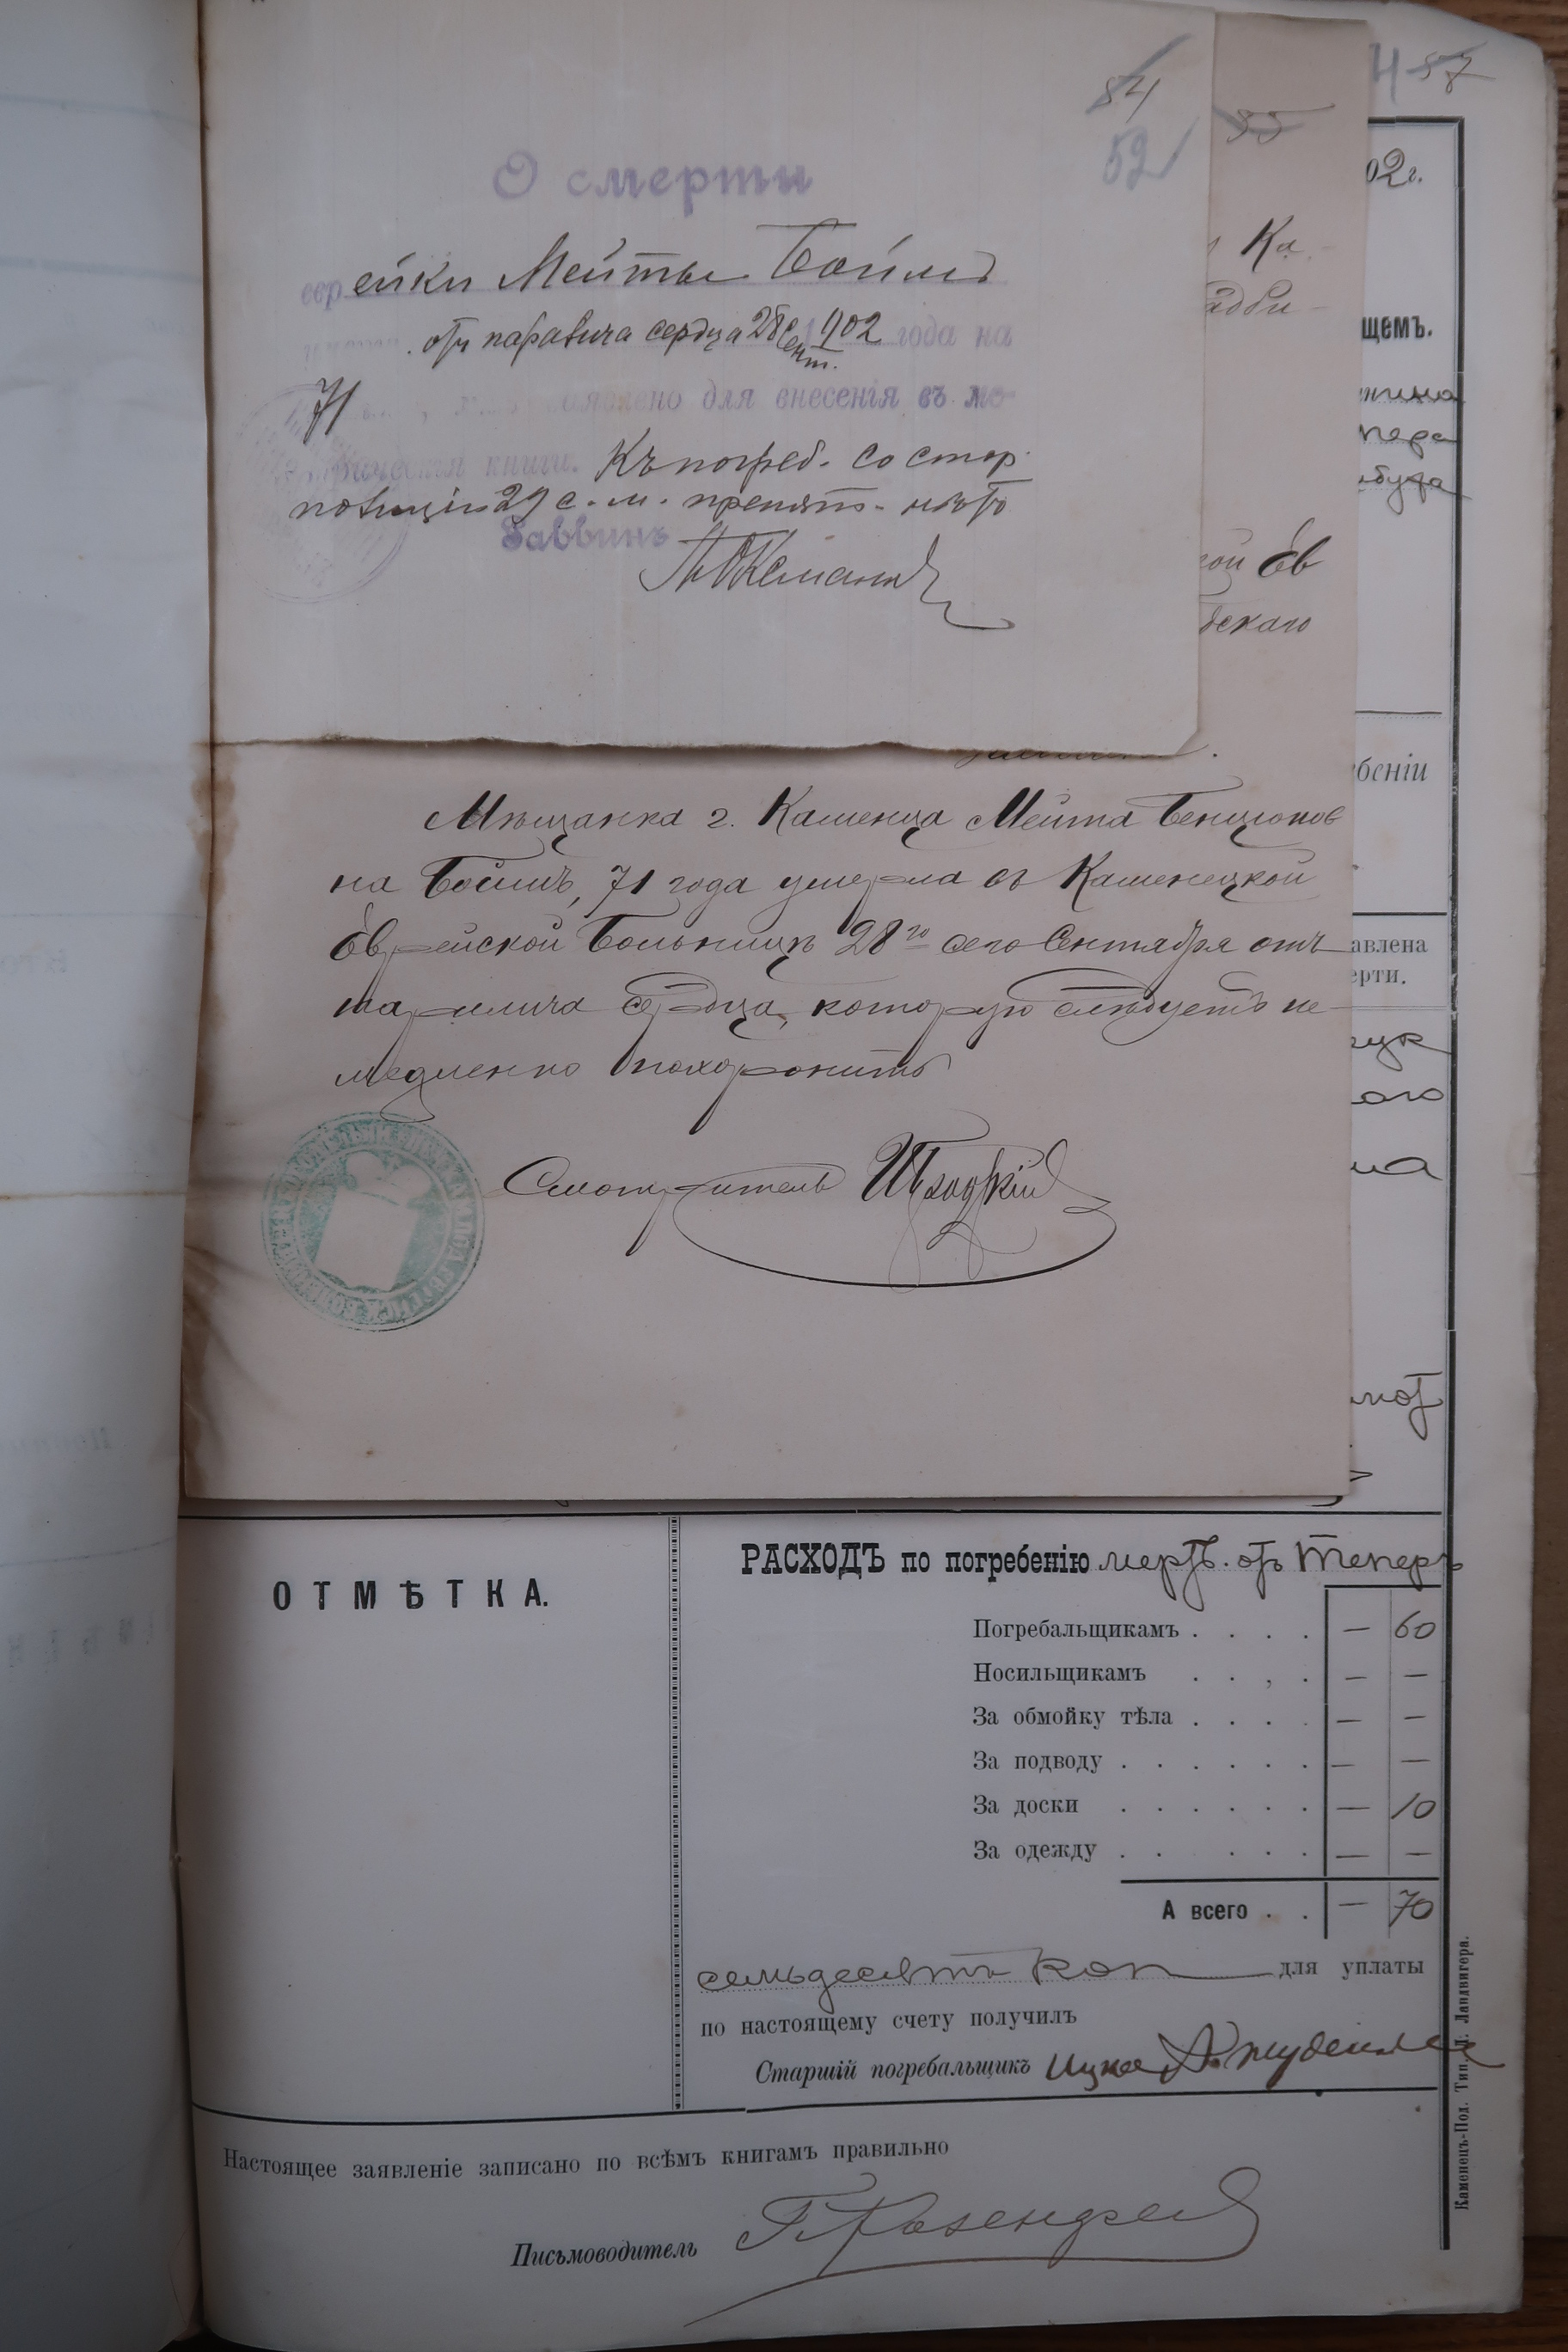 84
52
О смерти
еврейки Мейты Боймъ
отъ паралича сердца 28 Сент. 1902 года на
71 для внесенія въ ме-
трическія книги. Къ погреб. со стор.
полиціи 29 с. м. препят. нѣтъ
Раввинъ
55
Ка-
ой Ев
дскаго
57
02 г.
щемъ.
бенiи
авлена
ерти.
Мѣщанка г. Каменца Мейта Бенционов
на Боймъ, 71 года умерла въ Каменецкой
Еврейской Больницѣ 28го сего Сентября отъ
паралича сердца, которую слѣдуетъ не-
медленно похоронить
Смотритель
ОТМѢТКА.
РАСХОДЪ по погребенію мертв. отъ Теперъ
Погребальщикамъ . . . . — 60
Носильщикамъ . . , . — —
За обмойку тѣла . . . . — —
За подводу . . . . . . — —
За доски . . . . . . — 10
За одежду . . . . . . — —
А всего . . — 70
семьдесять коп для уплаты
по настоящему счету получилъ
Старшій погребальщикъ Ицко
Настоящее заявленіе записано по всѣмъ книгамъ правильно
Письмоводитель
Каменецъ-Под. Тип. Л. Ландвигера.